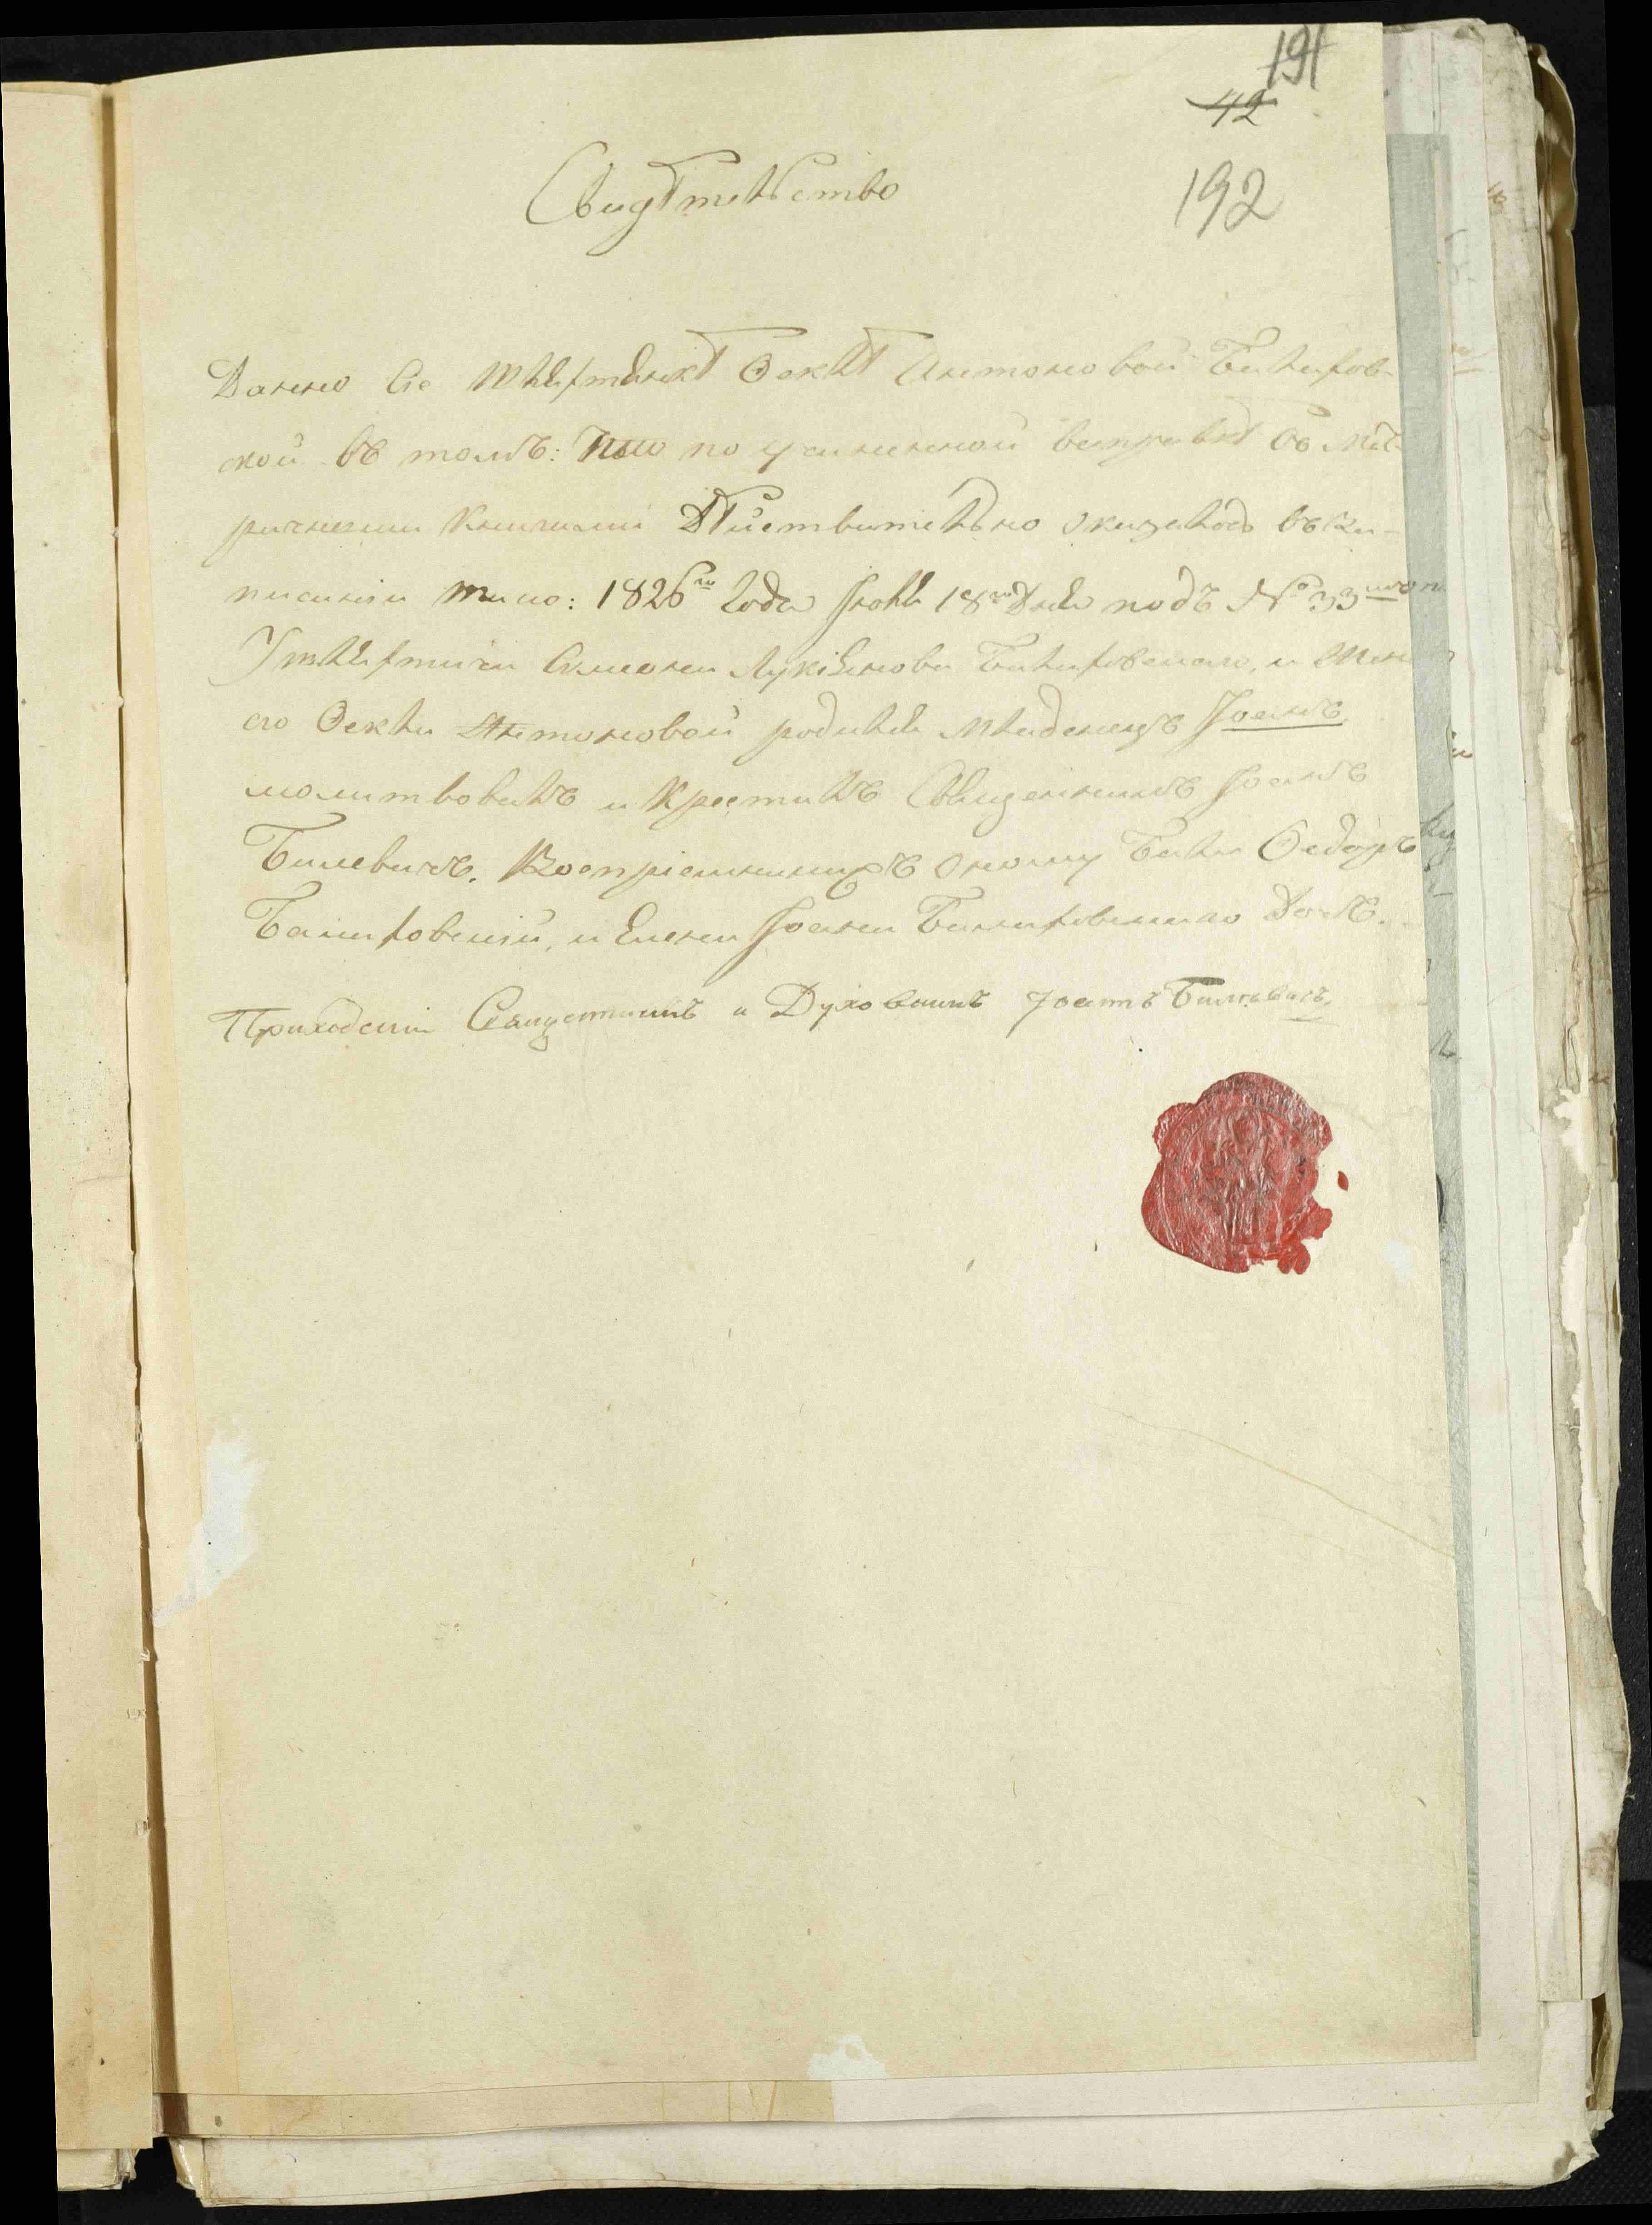 191
42
192
Свидѣтельство
Данно Сіе шляхтянкѣ Ѳеклѣ Антоновой
ской въ томъ: что по учиненной выправкѣ въ Мѣт-
ричными книгами Дѣйствительно оказалось въ За-
писаніи тако: 1826го Года Іюля 18го Дня подъ № 33
У шляхтича Симеона Лукіянова и Жены
его Ѳеклы Антоновой родился Младенецъ Іоанъ
молитвовалъ и Крестилъ Священникъ Іоанъ
Воспріемникихъ оному были Ѳедоръ
и Елена Іоана Дочь.
Приходскій Священникъ и Духовникъ Іоаннъ